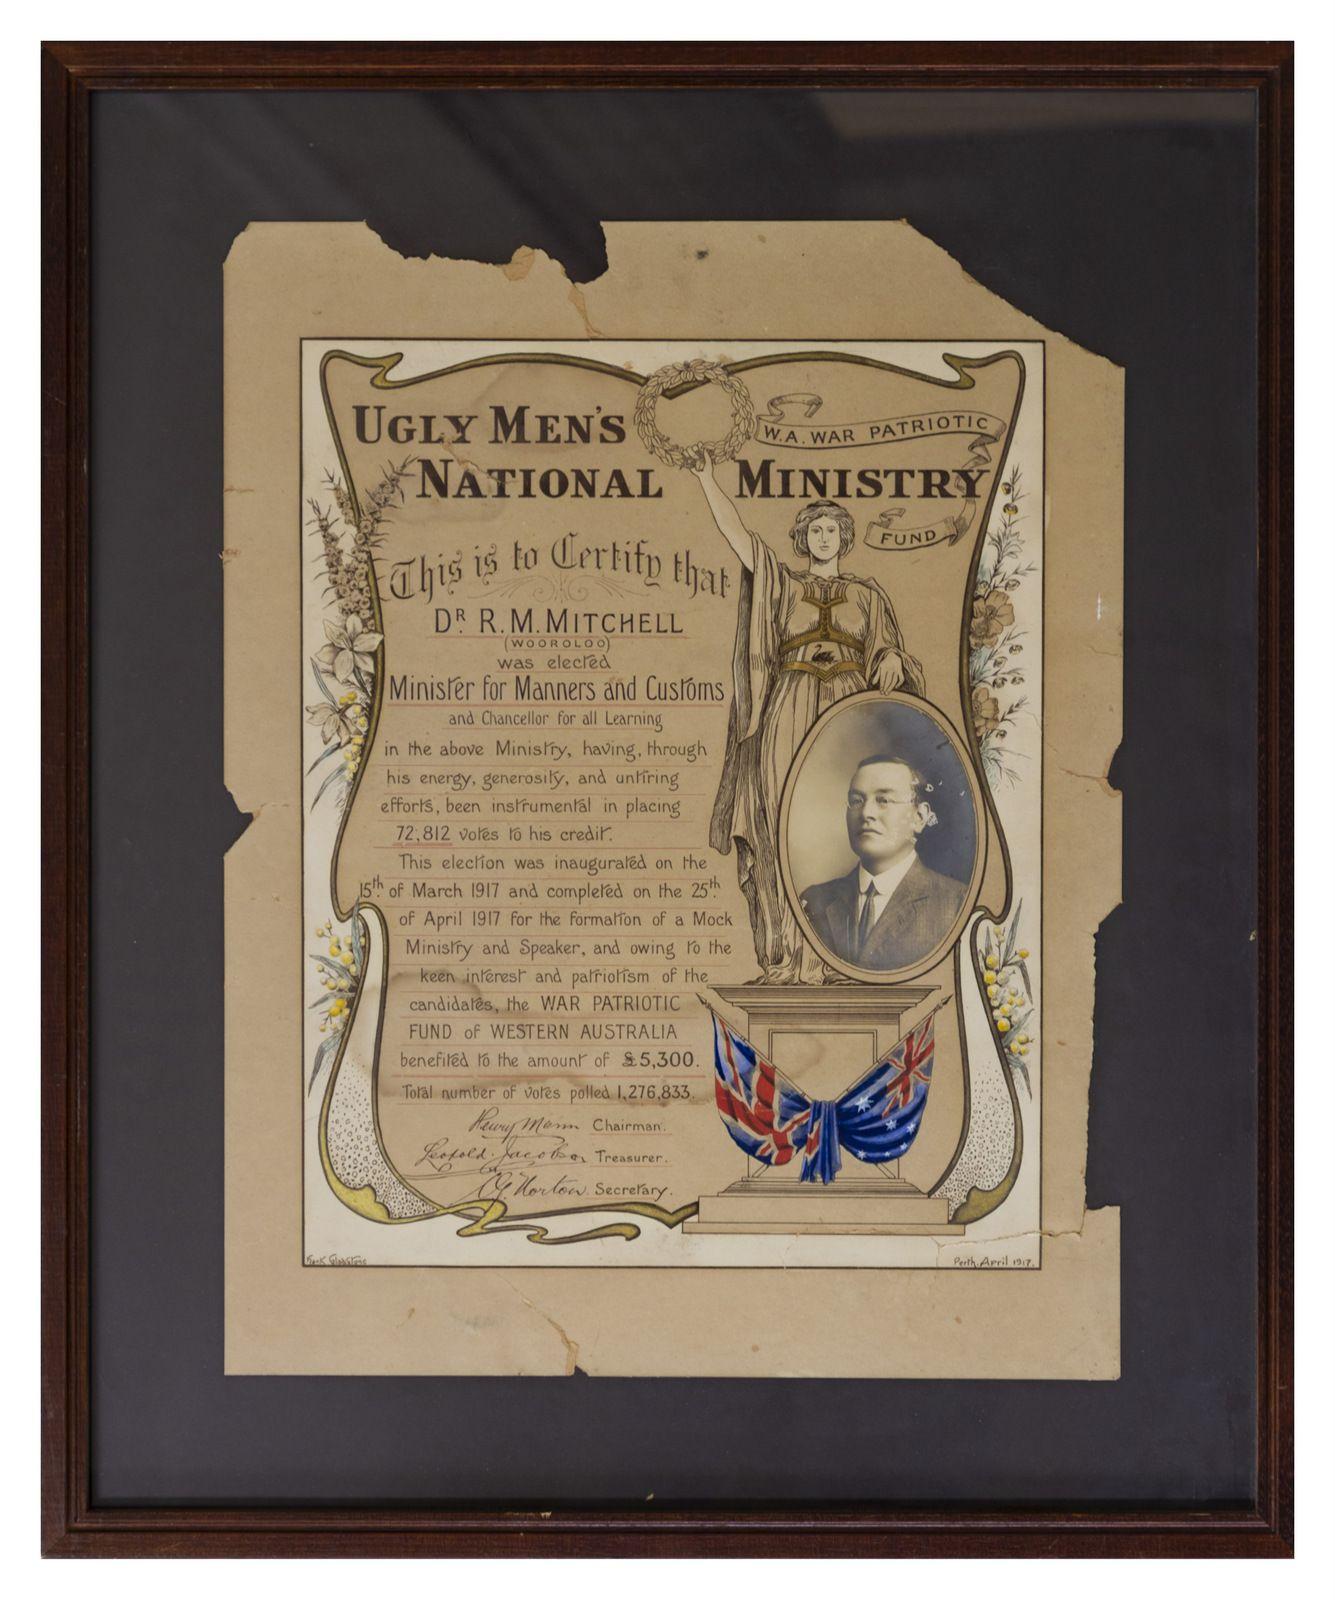 UGLY MEN'S
W.A. WAR PATRIOTIC
NATIONAL MINISTRY
FUND
This is to Certify that
DR. R. M. MITCHELL
(WOOROLOO)
was elected
Minister for Manners and Customs
and Chancellor for all Learning
in the above Ministry, having, through
his energy, generosity, and untiring
efforts, been instrumental in placing
72,812 votes to his credit.
This election was inaugurated on the
15th. of March 1917 and completed on the 25th.
of April 1917 for the formation of a Mock
Ministry and Speaker, and owing to the
keen interest and patriotism of the
candidates, the WAR PATRIOTIC
FUND of WESTERN AUSTRALIA
benefited to the amount of £5,300.
Total number of votes polled 1,276,833.
Henry Mann Chairman.
Leopold Jacobson Treasurer.
Norton Secretary.
Gladstone
Perth. April 1917.